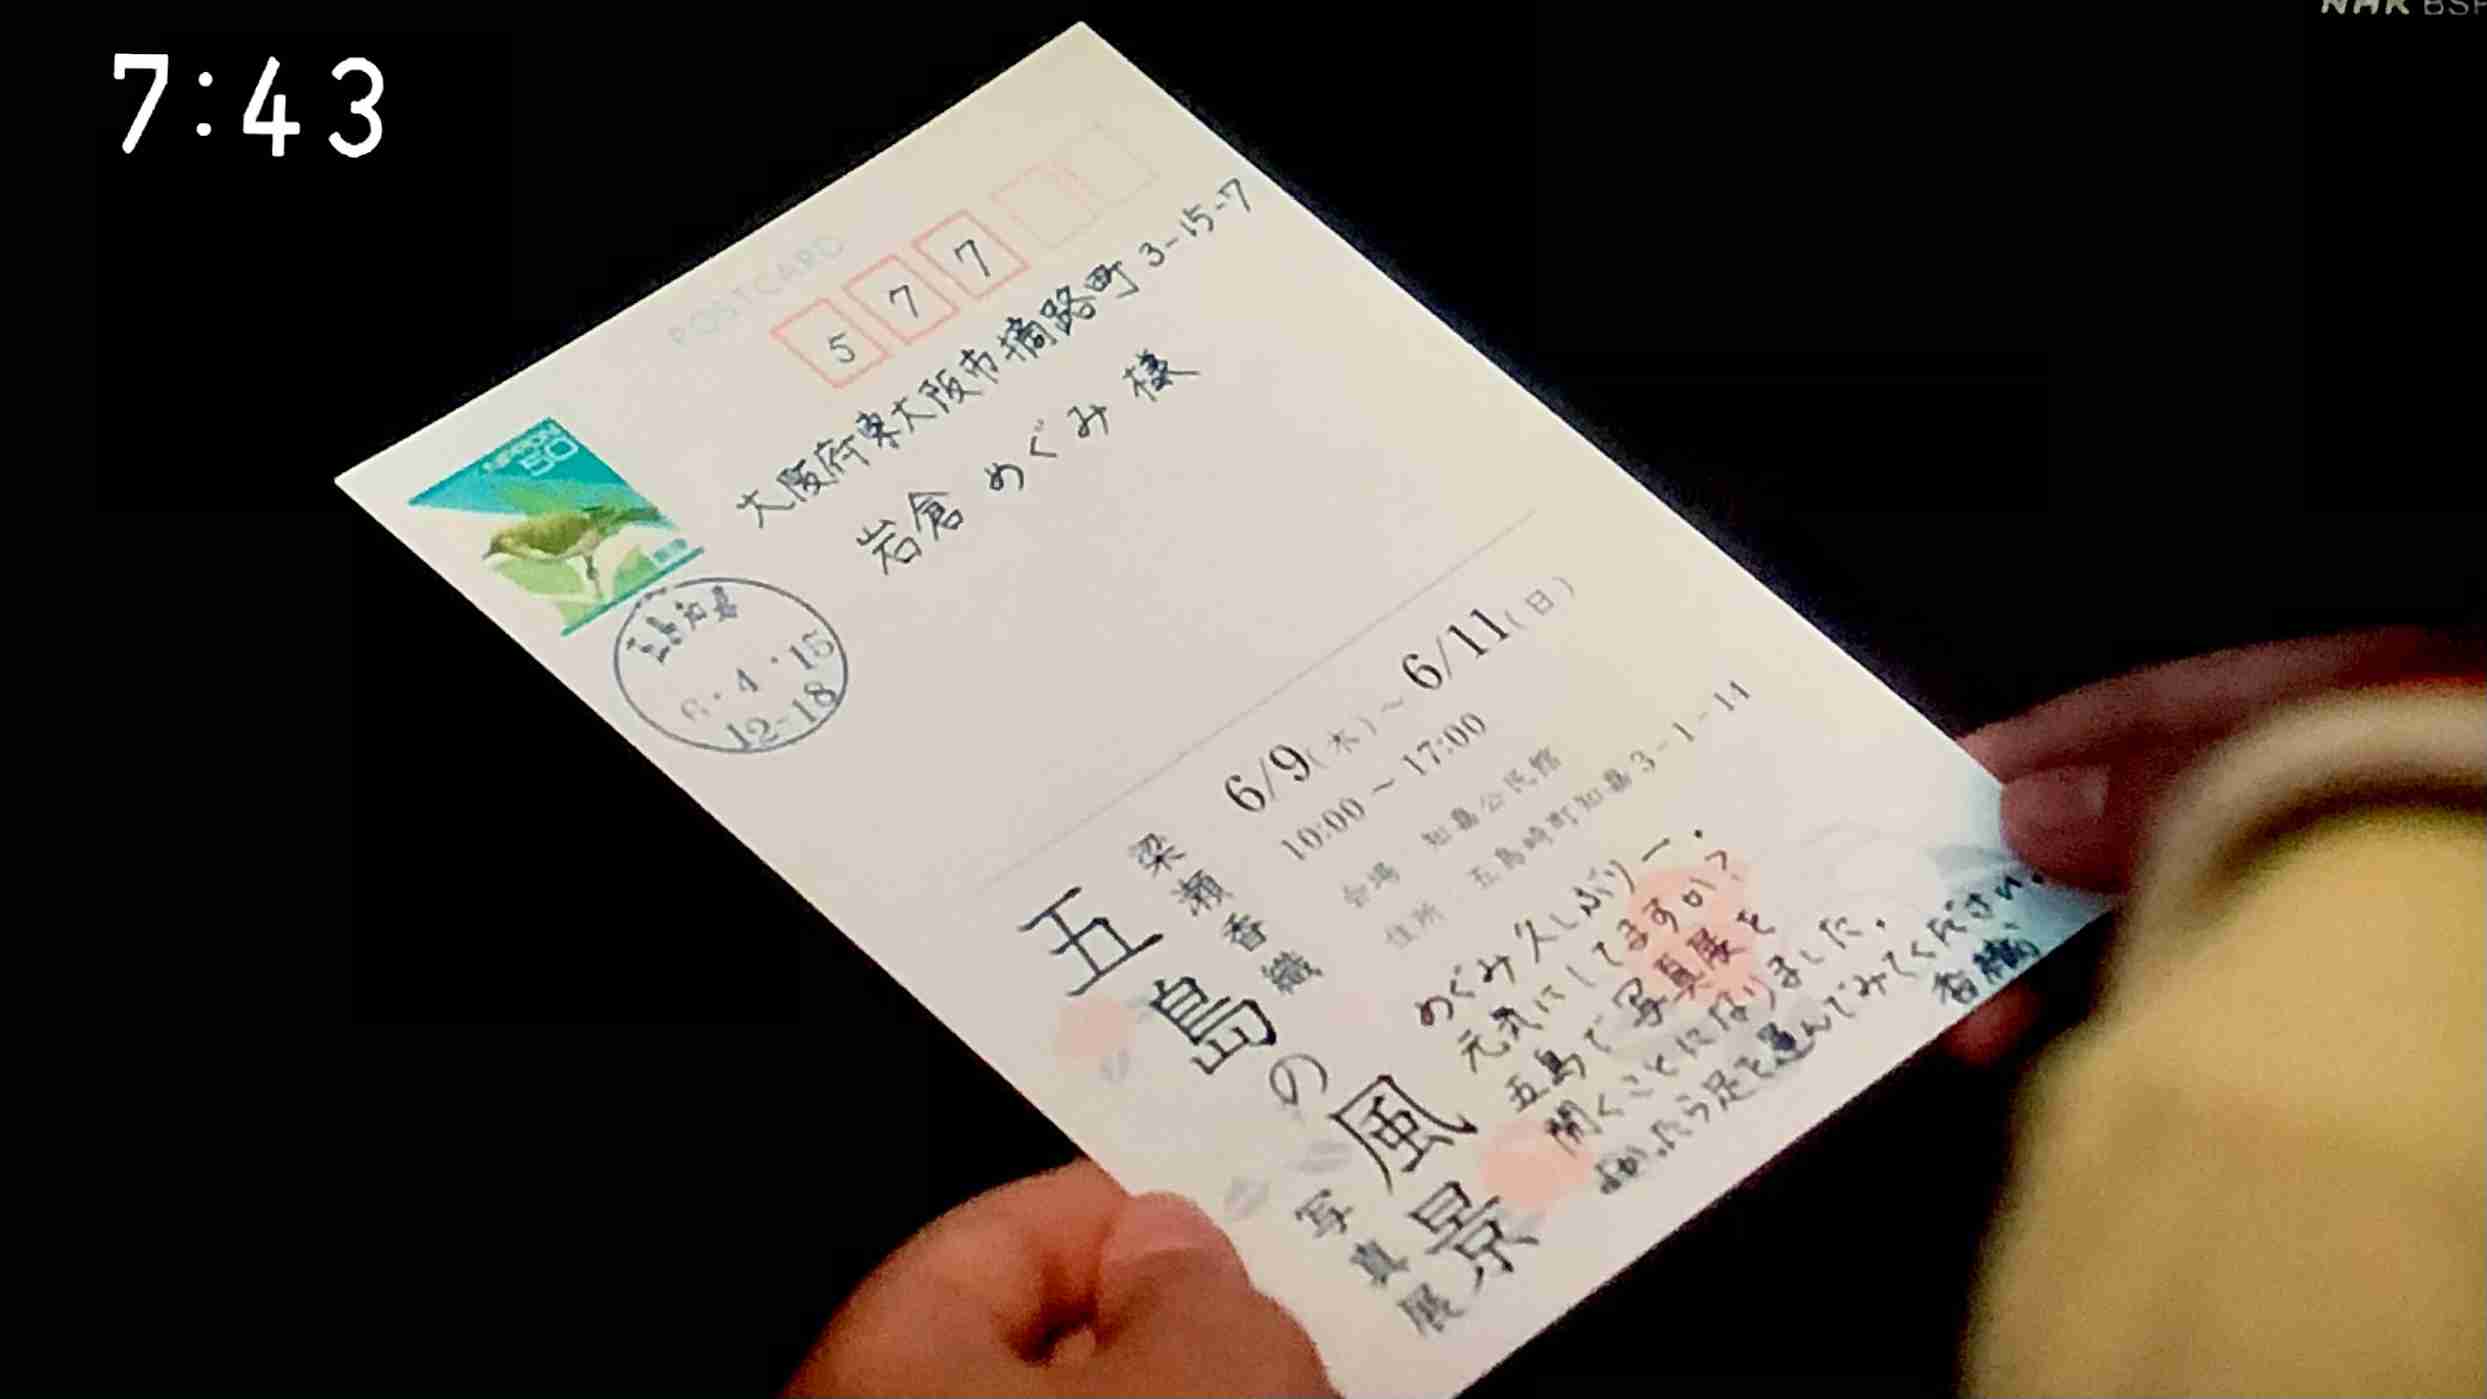 7:43
NHK BSP
POSTCARD
577
大阪府東大阪市摘路町3-15-7
岩倉 めぐみ 様
NIPPON
50
五島知嘉
6.4.15
12-18
6/9(木)~6/11(日)
10:00~17:00
会場 知嘉公民館
住所 五島崎町知嘉3-1-14
梁瀬香織
五島の風景
写真展
めぐみ久しぶりー.
元気にしてますか?
五島で写真展を
開くことになりました.
よかったら足を運んでみてください.
香織